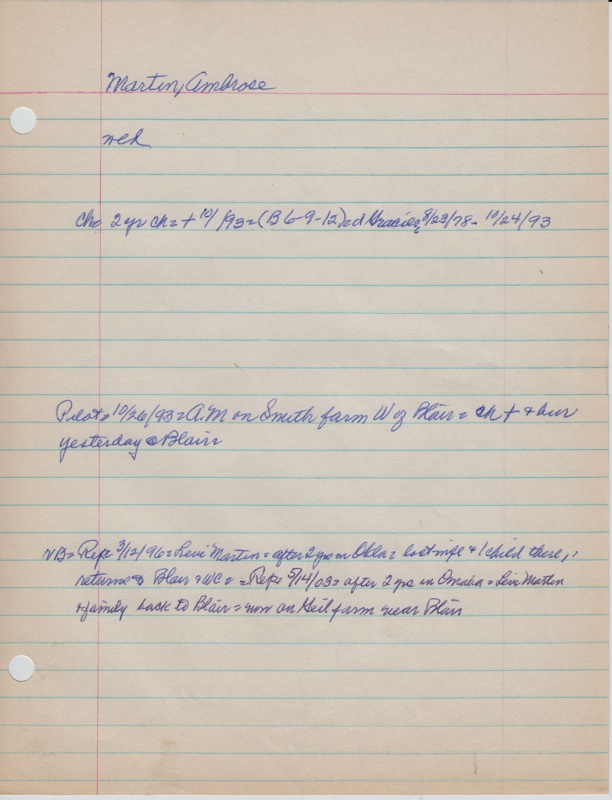 Martin, Ambrose
wed
Ch= 2 yr ch = + 10/ /93 = (B 6-9-12) = d Gracie, 8/23/78 - 10/24/93
Pilot = 10/26/93 = A.M on Smith farm W of Blair = ch + & bur
yesterday @ Blair
NB = Rep = 3/12/96 = Levi Martin = after 2 yrs in Okla = lost wife & 1 child there,
returns Blair & WC = = Rep = 5/14/03 = after 2 yrs in Omaha = Levi Martin
& family back to Blair = now on Heil farm near Blair